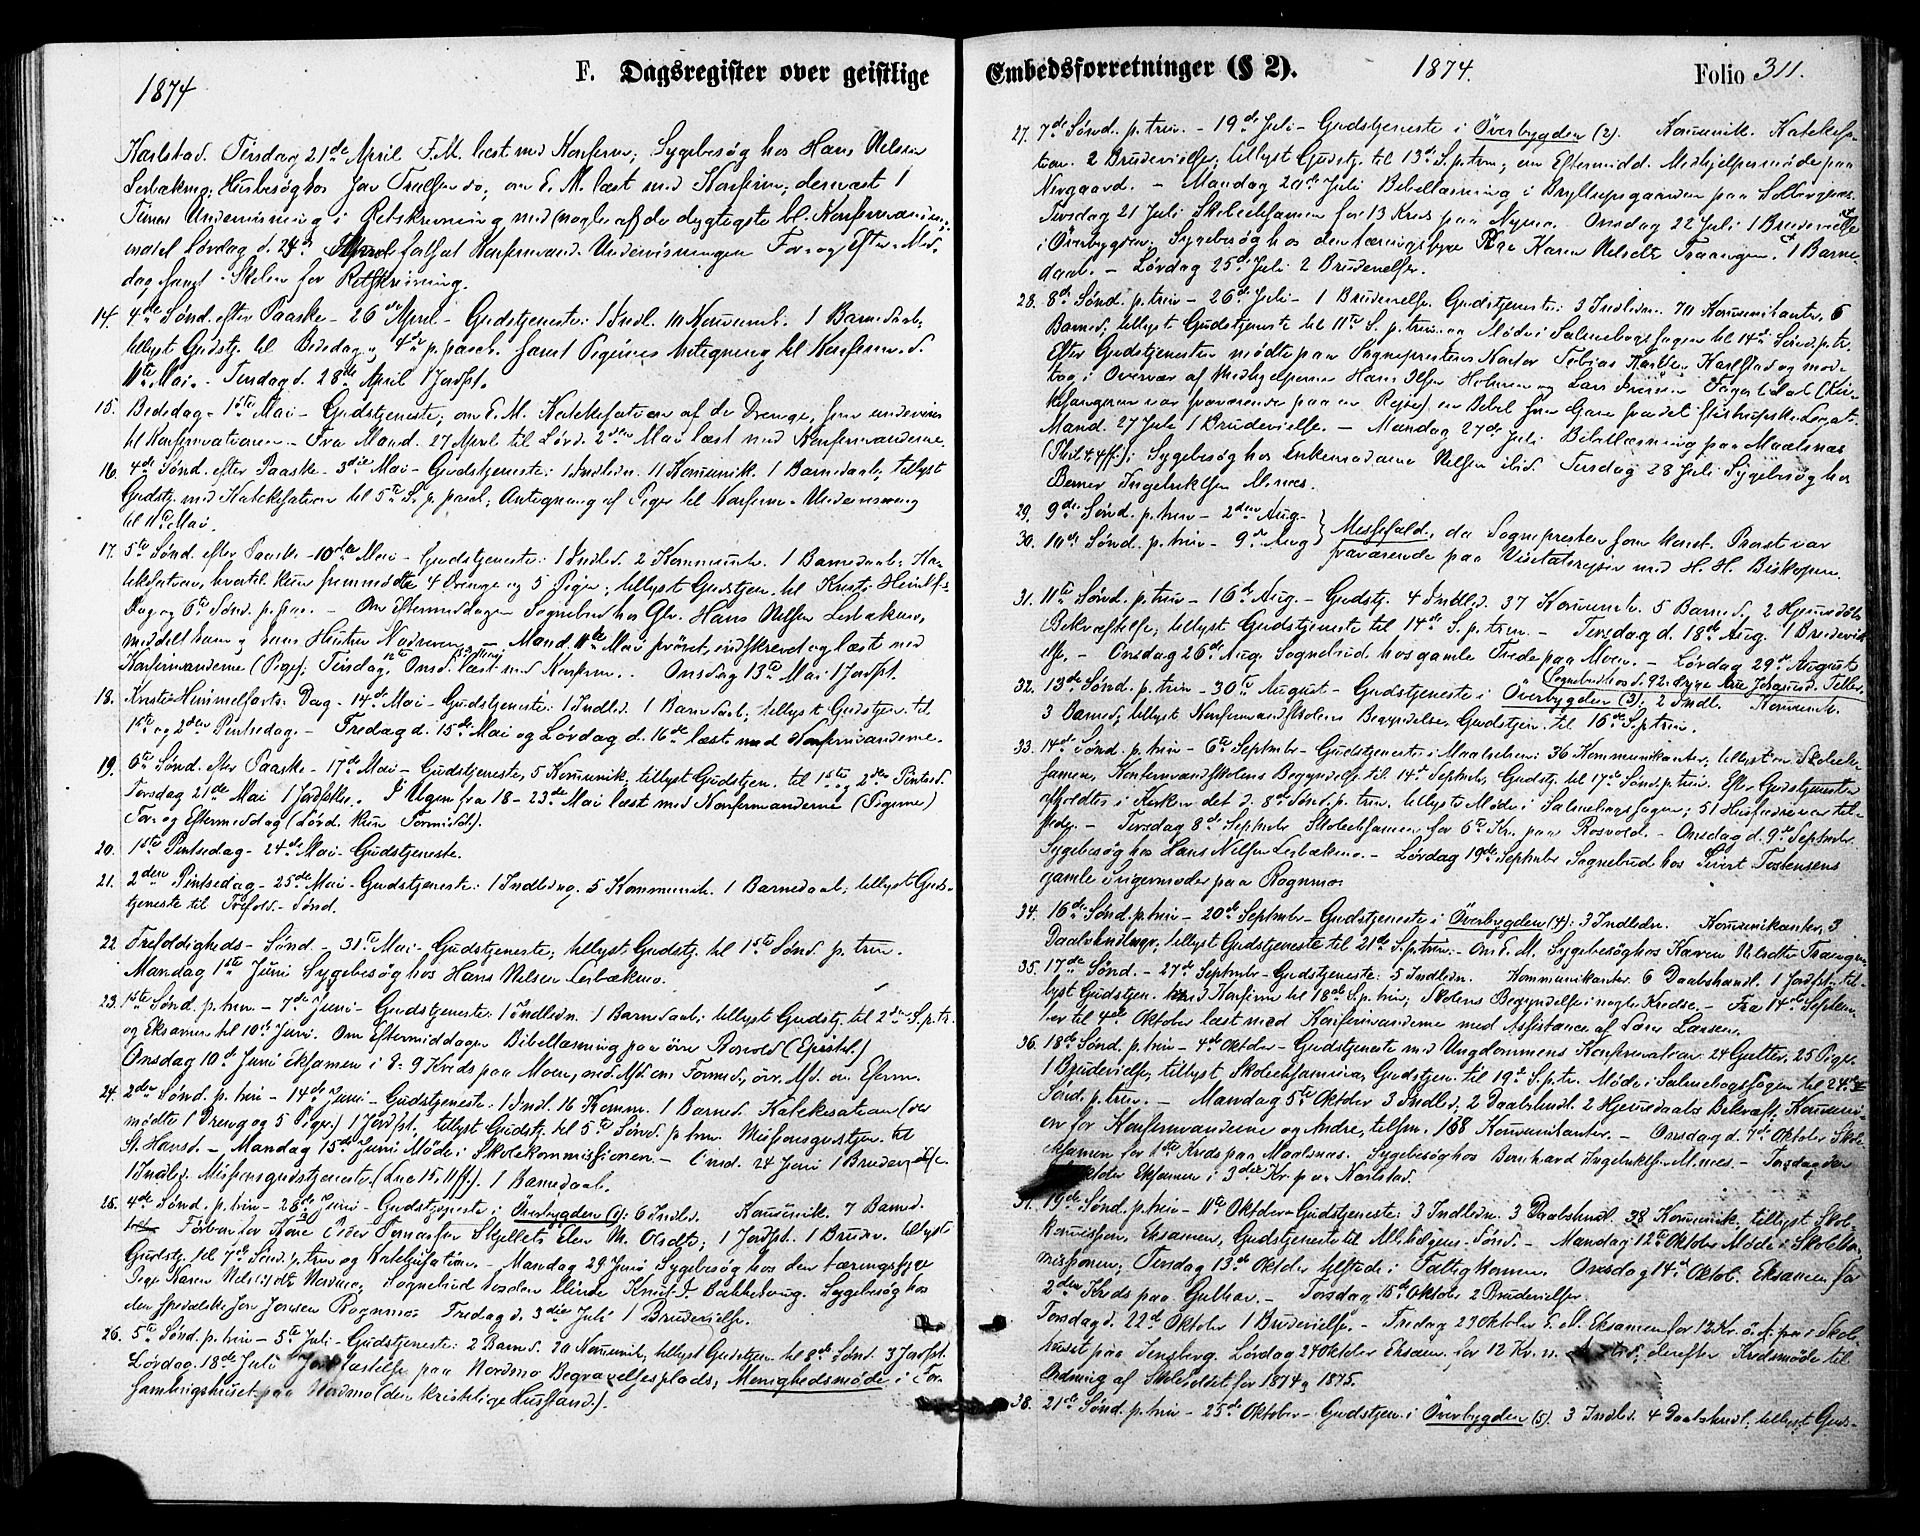 1874
F. Dagsregister over geistlige
Karlstad. Tirsdag 21de April F.M. læst med Konfirm; Sygebesøg hos Hans Nielsen
Lerbækmo, Husbesøg hos Jon do, om E. M. læst med Konfirm; dernæst 1
Times Undervisning i Retskrivning med (nogle af de dygtigste bl. Konfirmandern;
indtil Lørdag d. fortsat Konfirmand-Undervisningen For- og Efter-Mid-
dag samt Skolen for Retskrivning.
14. 4de Sønd. efter Paaske - 26de April - Gudstjeneste: 1 Indl. 10 Komunik. 1 Barnedaab;
tillyst Gudstj. til Bededag og 4de p. pasch. samt Pigernes Antegning til Konfirm. d.
11te Mai. - Tirsdag d. 28de April 1 Jordf.
15. Bededag - 1ste Mai - Gudstjeneste; om E. M. Katekesation af de Drenge, som undervises
til Konfirmationen - Fra Mand. 27 April til Lørd. 2den Mai læst med Konfirmanderne.
16. 4de Sønd. efter Paaske - 3die Mai - Gudstjeneste: 1 Indledn. 11 Komunik. 1 Barnedaab; tillyst
Gudstj. med Katekesation til 5te S. p. pasch; Antegning af Piger til Konfirm.- Undervisning
til 11te Mai.
17. 5te Sønd. efter Paaske - 10de Mai - Gudstjeneste: 1 Indled. 2 Kommunik. 1 Barnedaab; Ka-
tekesation, hvortil kun fremmødte 4 Drenge og 5 Piger; tillyst Gudstjen. til Kristi Himlf.-
Dag og 6te Sønd. p. pas. - Om Eftermiddagen Sognebud hos Gbr. Hans Nilsen Lerbækmo,
meddelt ham og hans Hustru Nadveren. - Mand. 11te Mai prøvet, indskrevet og læst med
Konfirmanderne (Piger). Tirsdag, Onsd. læst med Konfirm. Onsdag 13te Mai 1 Jordf.
18. Kristi Himmelfarts Dag - 14de Mai - Gudstjeneste: 1 Indled. 1 Barnedaab; tillyst Gudstjen. til
1ste og 2den Pintsedag. - Fredag d. 15de Mai og Lørdag d. 16de læst med Konfirmanderne.
19. 6te Sønd. efter Paaske - 17de Mai - Gudstjeneste, 5 Komunik, tillyst Gudstjen. til 1ste og 2den Pintsed.
Torsdag 21de Mai 1 Jordf. I Ugen fra 18 - 23de Mai læst med Konfirmanderne (Pigerne)
For- og Eftermiddag (Lørd. kun Formidd.).
20. 1ste Pintsedag - 24de Mai - Gudstjeneste.
21. 2den Pintsedag - 25de Mai - Gudstjeneste: 1 Indledng. 5 Kommunik. 1 Barnedaab; tillyst Guds-
tjeneste til Trefold.- Sønd.
22. Trefoldigheds - Sønd. - 31te Mai - Gudstjeneste; tillyst Gudstj. til 1ste Sønd. p. trin.
Mandag 1ste Juni Sygebesøg hos Hans Nielsen Lerbækmo.
23. 1ste Sønd. p. trin - 7de Juni - Gudstjeneste: 1 Indledn. 1 Barnedaab; tillyst Gudstj. til 2den S. p. tr.
og Eksamen til 10de Juni. Om Eftermiddagen Bibellæsning paa øvre Rosvold
Onsdag 10de Juni Eksamen i 8- 9 Kreds paa Moen, ned. Afd. om Formid, øv. Afd. om Efterm.
24. 2den Sønd. p. trin - 14de Juni - Gudstjeneste: 1 Indl. 16 Komm. 1 Barned. Katekesation (der
mødte 1 Dreng og 5 Piger.) 1 Jordf. tillyst Gudstj. til 5te Sønd. p. trin. Missionsgudstjen. til
St. Hansd. - Mandag 15de Juni Møde i Skolekommissionen. - Onsd. 24 Juni 1 Brudevielse.
1 Indled. Missionsgudstjeneste (Luc 15,11 ff.). 1 Barnedaab.
25. 4de Sønd. p. trin - 28de Juni - Gudstjeneste i Øverbygden (1): 6 Indled. Komunik. 7 Barned.
1 Jordf. 1 Brudev. tillyst
Gudstj. til 7de Sønd. p. trin og Katekisation. - Mandag 29 Juni Sygebesøg hos den tæringssyge
Pige Karen Sognebud hos den blinde Knud J. Bakkehaug. Sygebesøg hos
den spedalske Jon Jonsen Rognmo. Fredag d. 3die Juli 1 Brudevielse.
26. 5te Sønd. p. trin - 5te Juli - Gudstjeneste: 2 Barned. 20 Komunik; tillyst Gudstjen. til 8de Sønd. 3 Jordf.
Lørdag 18de Juli paa Nordmo Begravelsesplads, Menighedsmøde i For-
samlingshuset paa Nordmo (den kristelige Husstand.).
Embedsforretninger (§ 2). 1874. Folio 311.
27. 7de Sønd. p. trin. - 19de Juli - Gudstjeneste i Øverbygden (2). Komunik. Katekesa-
tion. 2 Brudevielser; tillyst Gudstj. til 13de S. p. trin; om Eftermidd. Medhjelpermøde paa
Nergaard. - Mandag 20de Juli Bibellæsning i Bryllupsgaarden paa
Tirsdag 21 Juli Skoleeksamen for 13 Kreds paa Nymo. Onsdag 22 Juli 1 Brudevielse
i Øverbygden, Sygebesøg hos den tæringssyge Pige Karen 1 Barne-
daab. - Lørdag 25de Juli 2 Brudevielser.
28. 8de Sønd. p. trin - 26de Juli - 1 Brudevielse. Gudstjeneste: 3 Indledn. 70 Komunikanter, 6
Barned, tillyst Gudstjeneste til 11te S. p. trin og Møde i Salmebogssagen til 14de Sønd. p. tr.
Efter Gudstjenesten mødte paa Sognepræstens Kontor Tobias Karlsen Karlstad og mod-
tog i Overvær af Medhjelperne Hans Olsen Holmen og Lars Fagerlidal (Kir-
kesangeren var fraværende paa en Rejse) en Bibel som Gave fra det Legat.
Mand. 27 Juli 1 Brudevielse. - Mandag 27de Juli Bibellæsning paa Maalsnes
(Phil. 4.4ff.); Sygebesøg hos Enkemadame Nilsen ibid. Tirsdag 28 Juli Sygebesøg hos
Berner Ingebrigtsen
29. 9de Sønd. p. trin - 2den Aug. -
30. 10de Sønd. p. trin - 9de Aug. } Messefald, da Sognepresten som konst. Provst var
fraværende paa Visitatsrejse med H. H. Biskopen.
31. 11te Sønd. p. trin - 16de Aug. - Gudstj. 4 Indled. 37 Komunik. 5 Barned, 2 Hjemmedøbte
Bekræftelse; tillyst Gudstjeneste til 14de S. p. trin. - Tirsdag d. 18de Aug. 1 Brudevi-
else. - Onsdag 26de Aug. Sognebud hos gamle paa Moen. - Lørdag 29de August
Sognebud hos d. 92 Arige
32. 13de Sønd. p. trin - 30te August - Gudstjeneste i Øverbygden (3): 2 Indl. Komunik.
3 Barned, tillyst Konfirmandskolens Begyndelse, Gudstjen. til 16de S. p. trin.
33. 14de Sønd. p. trin - 6te Septmbr - Gudstjeneste i Maalselven: 36 Kommunikanter, tillyst en Skoleek-
samen, Konfirmandskolens Begyndelse til 14de Septmbr, Gudstj. til 17de Sønd. p. trin. Efter Gudstjenesten
afholdtes i Kirken det d. 8de Sønd. p. trin. tillyste Møde i Salmebogssagen; 51 Husfædre var til-
stede. - Tirsdag 8de Septmbr Skoleeksamen for 6te Kr. paa Rosvold. - Onsdag d. 9de Septmbr
Sygebesøg hos Hans Nilsen Lerbækmo. - Lørdag 19de Septmbr Sognebud hos Sivert Tostensens
gamle Svigermoder paa Rognmo.
34. 16de Sønd. p. trin - 20de Septmbr - Gudstjeneste i Øverbygden (4): 3 Indledn. Komunikanter, 3
Daabshandlnger, tillyst Gudstjeneste til 21de S. p. trin. - Om E. M. Sygebesøg hos Karen
35. 17de Sønd. - 27de Septmbr - Gudstjeneste: 5 Indledn. Kommunikanter 6 Daabshandl. 1 Jordf. til-
lyst Gudstjen. med Konfirm til 18de S. p. trin, Skolens Begyndelse i nogle Kredse. - Fra 14de Septem-
ber til 4de Oktober læst med Konfirmanderne med Assistance af Larsen.
36. 18de Sønd. p. trin - 4de Oktober - Gudstjeneste med Ungdommens Konfirmation: 24 Gutter, 25 Piger.
1 Brudevielse, tillyst Skoleeksamina, Gudstjen. til 19de S. p. tr. Møde i Salmebogssagen til 24de
Sønd. p. trin. - Mandag 5te Oktober 3 Indled, 2 Daabshandl. 2 Hjemmedaabs Bekræft, Komuni-
on for Konfirmanderne og Andre, tilsm. 168 Komunikanter. - Onsdag d. 7de Oktober Skole-
eksamen for 1ste Kreds paa Maalsnes. Sygebesøg hos Bernhard Ingebrigtsen - Torsdag den
Oktober Eksamen i 3die Kr. paa Karlstad.
37. 19de Sønd. p. trin - 11te Oktober - Gudstjeneste: 3 Indledn. 3 Daabshndl. 38 Komunik, tillyst Skol-
Eksamen, Gudstjeneste til Allehelgens-Sønd. - Mandag 12te Oktober Møde i Skolekom-
missionen, Tirsdag 13de Oktober tilstede i Fattigkommn. Onsdag 14de Oktob. Eksamen for
2den Kreds paa Gulhav. - Torsdag 15de Oktober 2 Brudevielser.
Torsdag d. 22de Oktober 1 Brudevielse. - Fredag 23 Oktober E. M. Eksamen for 12 Kr. ø. A. paa Skole-
huset paa Lørdag 24 Oktober Eksam. for 12 Kr. n. derefter Kredsmøde til
Ordning af Skoleholdet for 1874 og 1875.
38. 21de Sønd. p. trin - 25de Oktober - Gudstjen. i Øverbygden (5). 3 Indled. 4 Daabshndl; tillyst Guds-